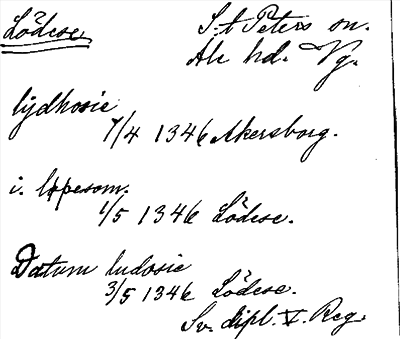 Lödöse
S:t Peters sn.
Ale hd. Vg.
lydhosie
7/4 1346 Akersborg.
i. lypesom.
1/5 1346 Lödöse.
Datum ludosie
3/5 1346 Lödöse.
Sv. dipl. V. Reg.